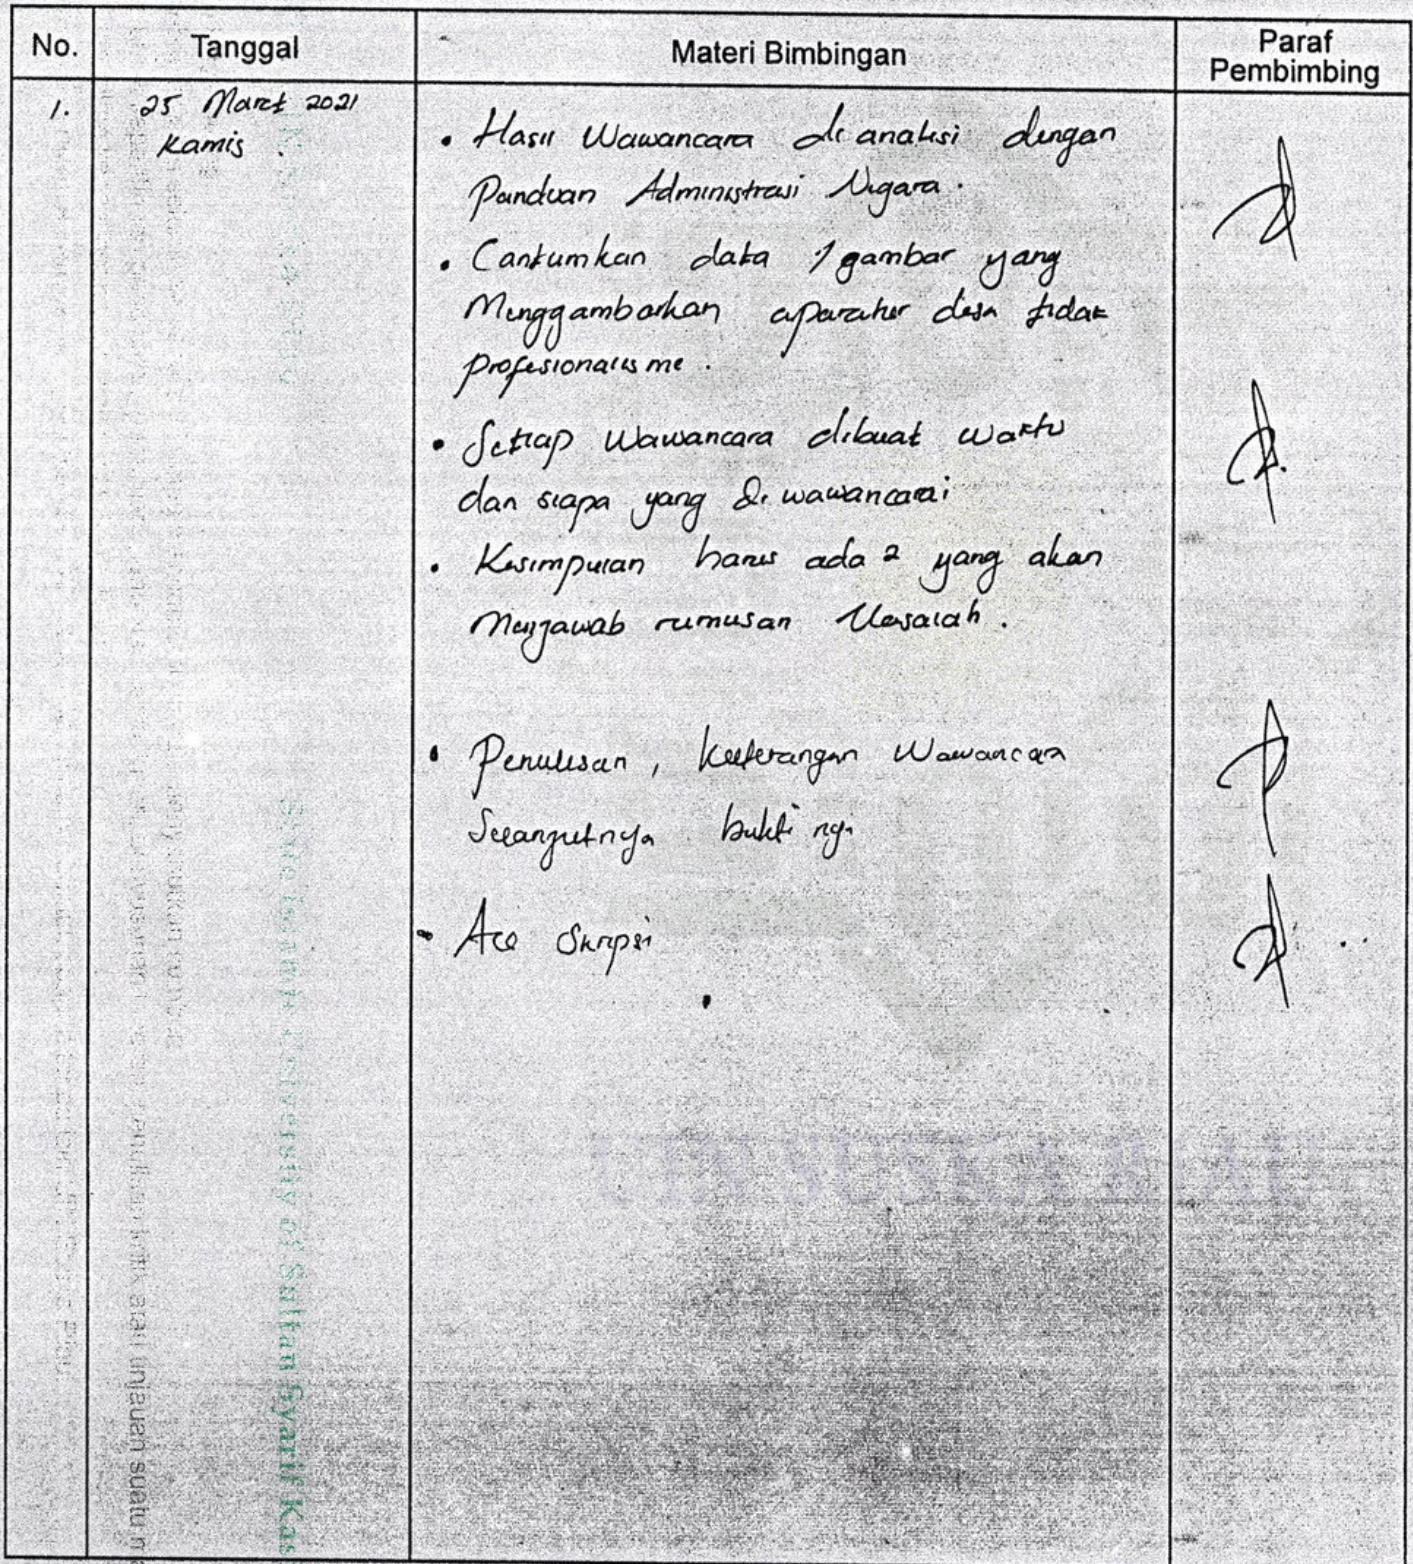 No. Tanggal Materi Bimbingan Paraf Pembimbing
1. 25 Maret 2021
Kamis .
• Hasil Wawancara di analisi dengan
Panduan Administrasi Negara .
• Cantumkan data / gambar yang
Menggambarkan aparatur desa tidak
profesionalisme .
• Setiap Wawancara dibuat waktu
dan siapa yang di wawancarai
• Kesimpulan harus ada 2 yang akan
Menjawab rumusan Masalah .
• Penulisan , keterangan Wawancara
Selanjutnya bukti nya
• Acc Skripsi
UIN SUSKA RIAU
University of Sultan Syarif Kas
atau tinjauan suatu m